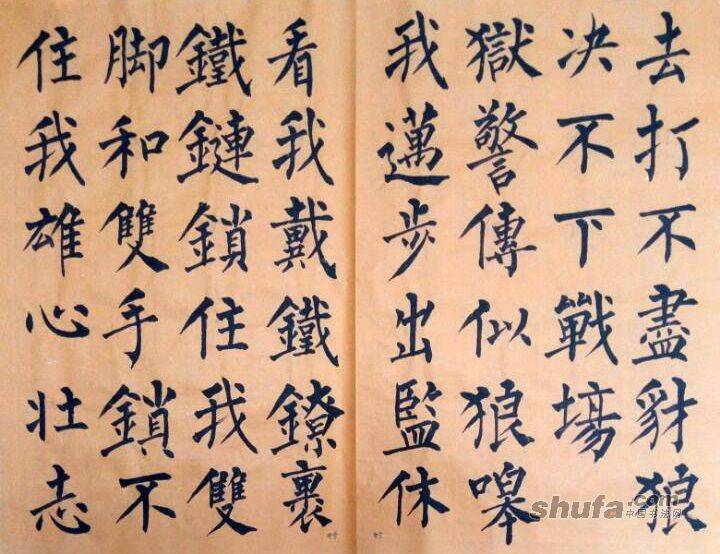 去打不盡豺狼
决不下戰場
獄警傳似狼嗥
我邁步出監休
看我戴鐵鐐裹
鐵鏈鎖住我雙
脚和雙手鎖不
住我雄心壯志
shufa.com
中国书法网